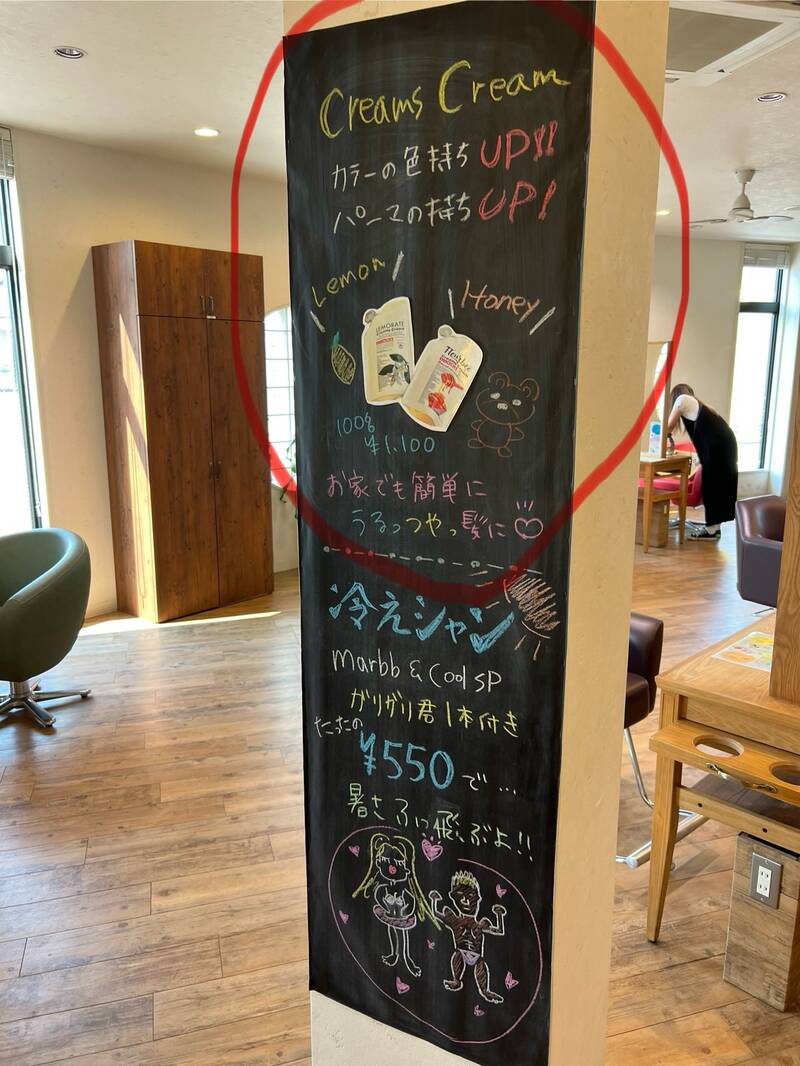 Creams Cream
カラーの色持ちUP!!
パーマの持ちUP!
Lemon
Honey
LEMORATE
100g
¥1,100
お家でも簡単に
うるっつやっ髪に
冷えシャン
Marbb & Cool SP
ガリガリ君1本付き
たったの
¥550で…
暑さふっ飛ぶよ!!